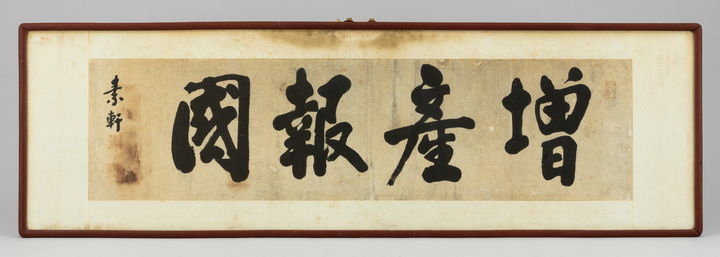 增產報國
素軒